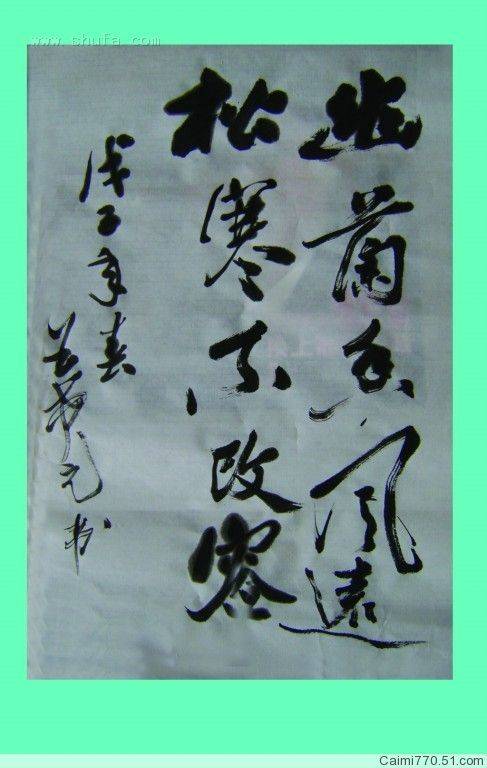 www.shufa.com
幽蘭香風遠
松寒不改容
戊子年春
元书
Caimi770.51.com